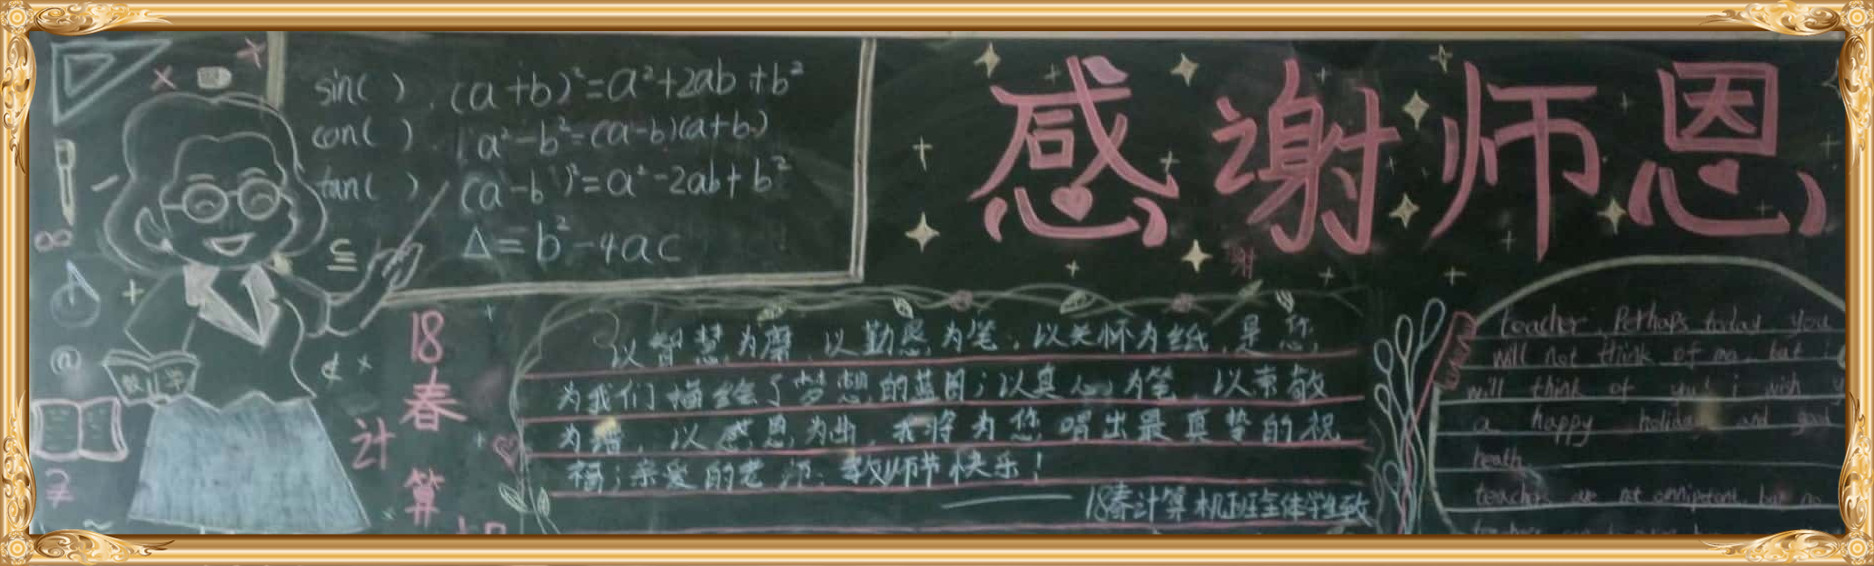 sin( ) . (a+b)²=a²+2ab+b²
con( ) . a²-b²=(a-b)(a+b)
tan( ) (a-b)²=a²-2ab+b²
Δ=b²-4ac
感谢师恩
谢
18
春
计
算
以智慧为磨，以勤恳为笔，以关怀为纸，是您，
为我们描绘了梦想的蓝图；以真心为笔，以亲敬
为谱，以感恩为曲，我将为您唱出最真挚的祝
福；亲爱的老师：教师节快乐！
——18春计算机班全体学生致
teacher, Perhaps today you
will not think of me, but i
will think of you! i wish y
a happy holiday and good
heath
teachers are not omnipotent, but no